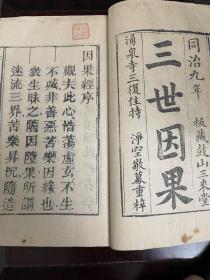 同治九年
板藏鼓山三東堂
三世因果
湧泉寺三復住持
淨空敬募重梓
因果經序
觀夫此心惜蕩虛玄不生
不滅非善惡因緣也
衆生昧之隨因隨果所謂
迷流三界苦樂昇沉隨造